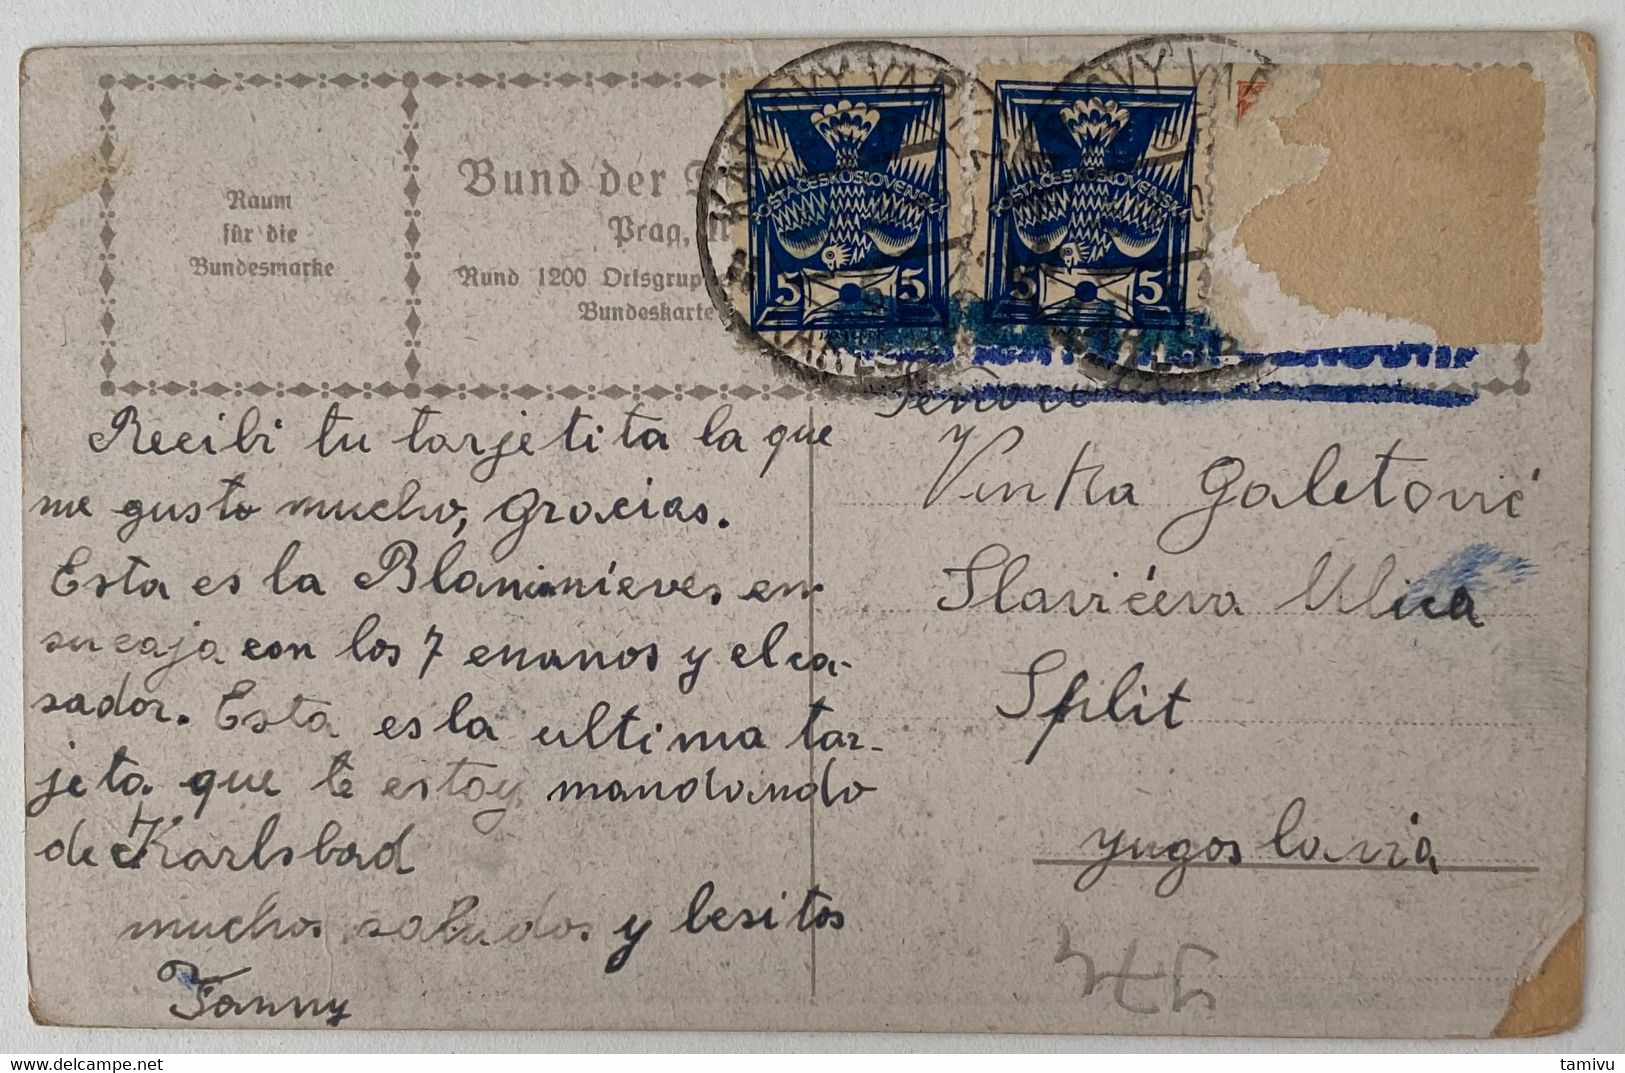 Raum
für die
Bundesmarke
Bund der
Prag,
Rund 1200 Ortsgrup
Bundeskarte
KARLOVY VARY
KARLOVY VAR
POŠTA ČESKOSLOVENSKÁ
5 5
POŠTA ČESKOSLOVENSKÁ
5 5
Recibi tu tarjetita la que
me gusto mucho, Gracias.
Esta es la Blaninieves en
su caja con los 7 enanos y el ca-
sador. Esta es la ultima tar-
jeta que te estoy mandando
de Karlsbad
muchos saludos y besitos
Fanny
Vinka Galetović
Slavićeva Ulica
Split
yugoslavia
tamivu